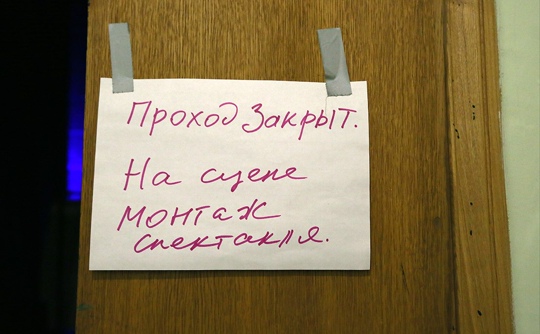 Проход Закрыт.
На сцене
монтаж
спектакля.